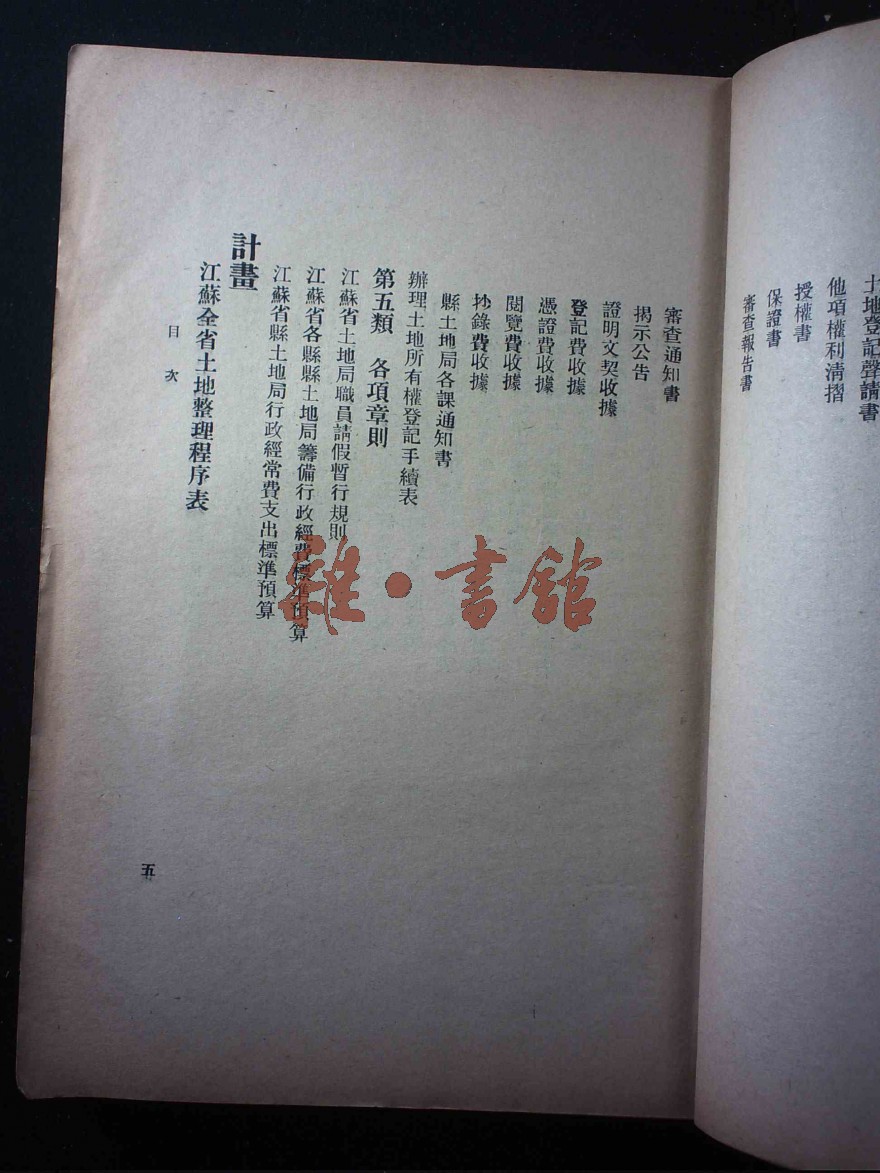 土地登記聲請書
他項權利淸摺
授權書
保證書
審查報告書
審查通知書
揭示公告
證明文契收據
登記費收據
憑證費收據
閱覽費收據
抄錄費收據
縣土地局各課通知書
辦理土地所有權登記手續表
第五類 各項章則
江蘇省土地局職員請假暫行規則
江蘇省各縣縣土地局籌備行政經費標準預算
江蘇省縣土地局行政經常費支出標準預算
計畫
江蘇全省土地整理程序表
目次
五
雜·書館